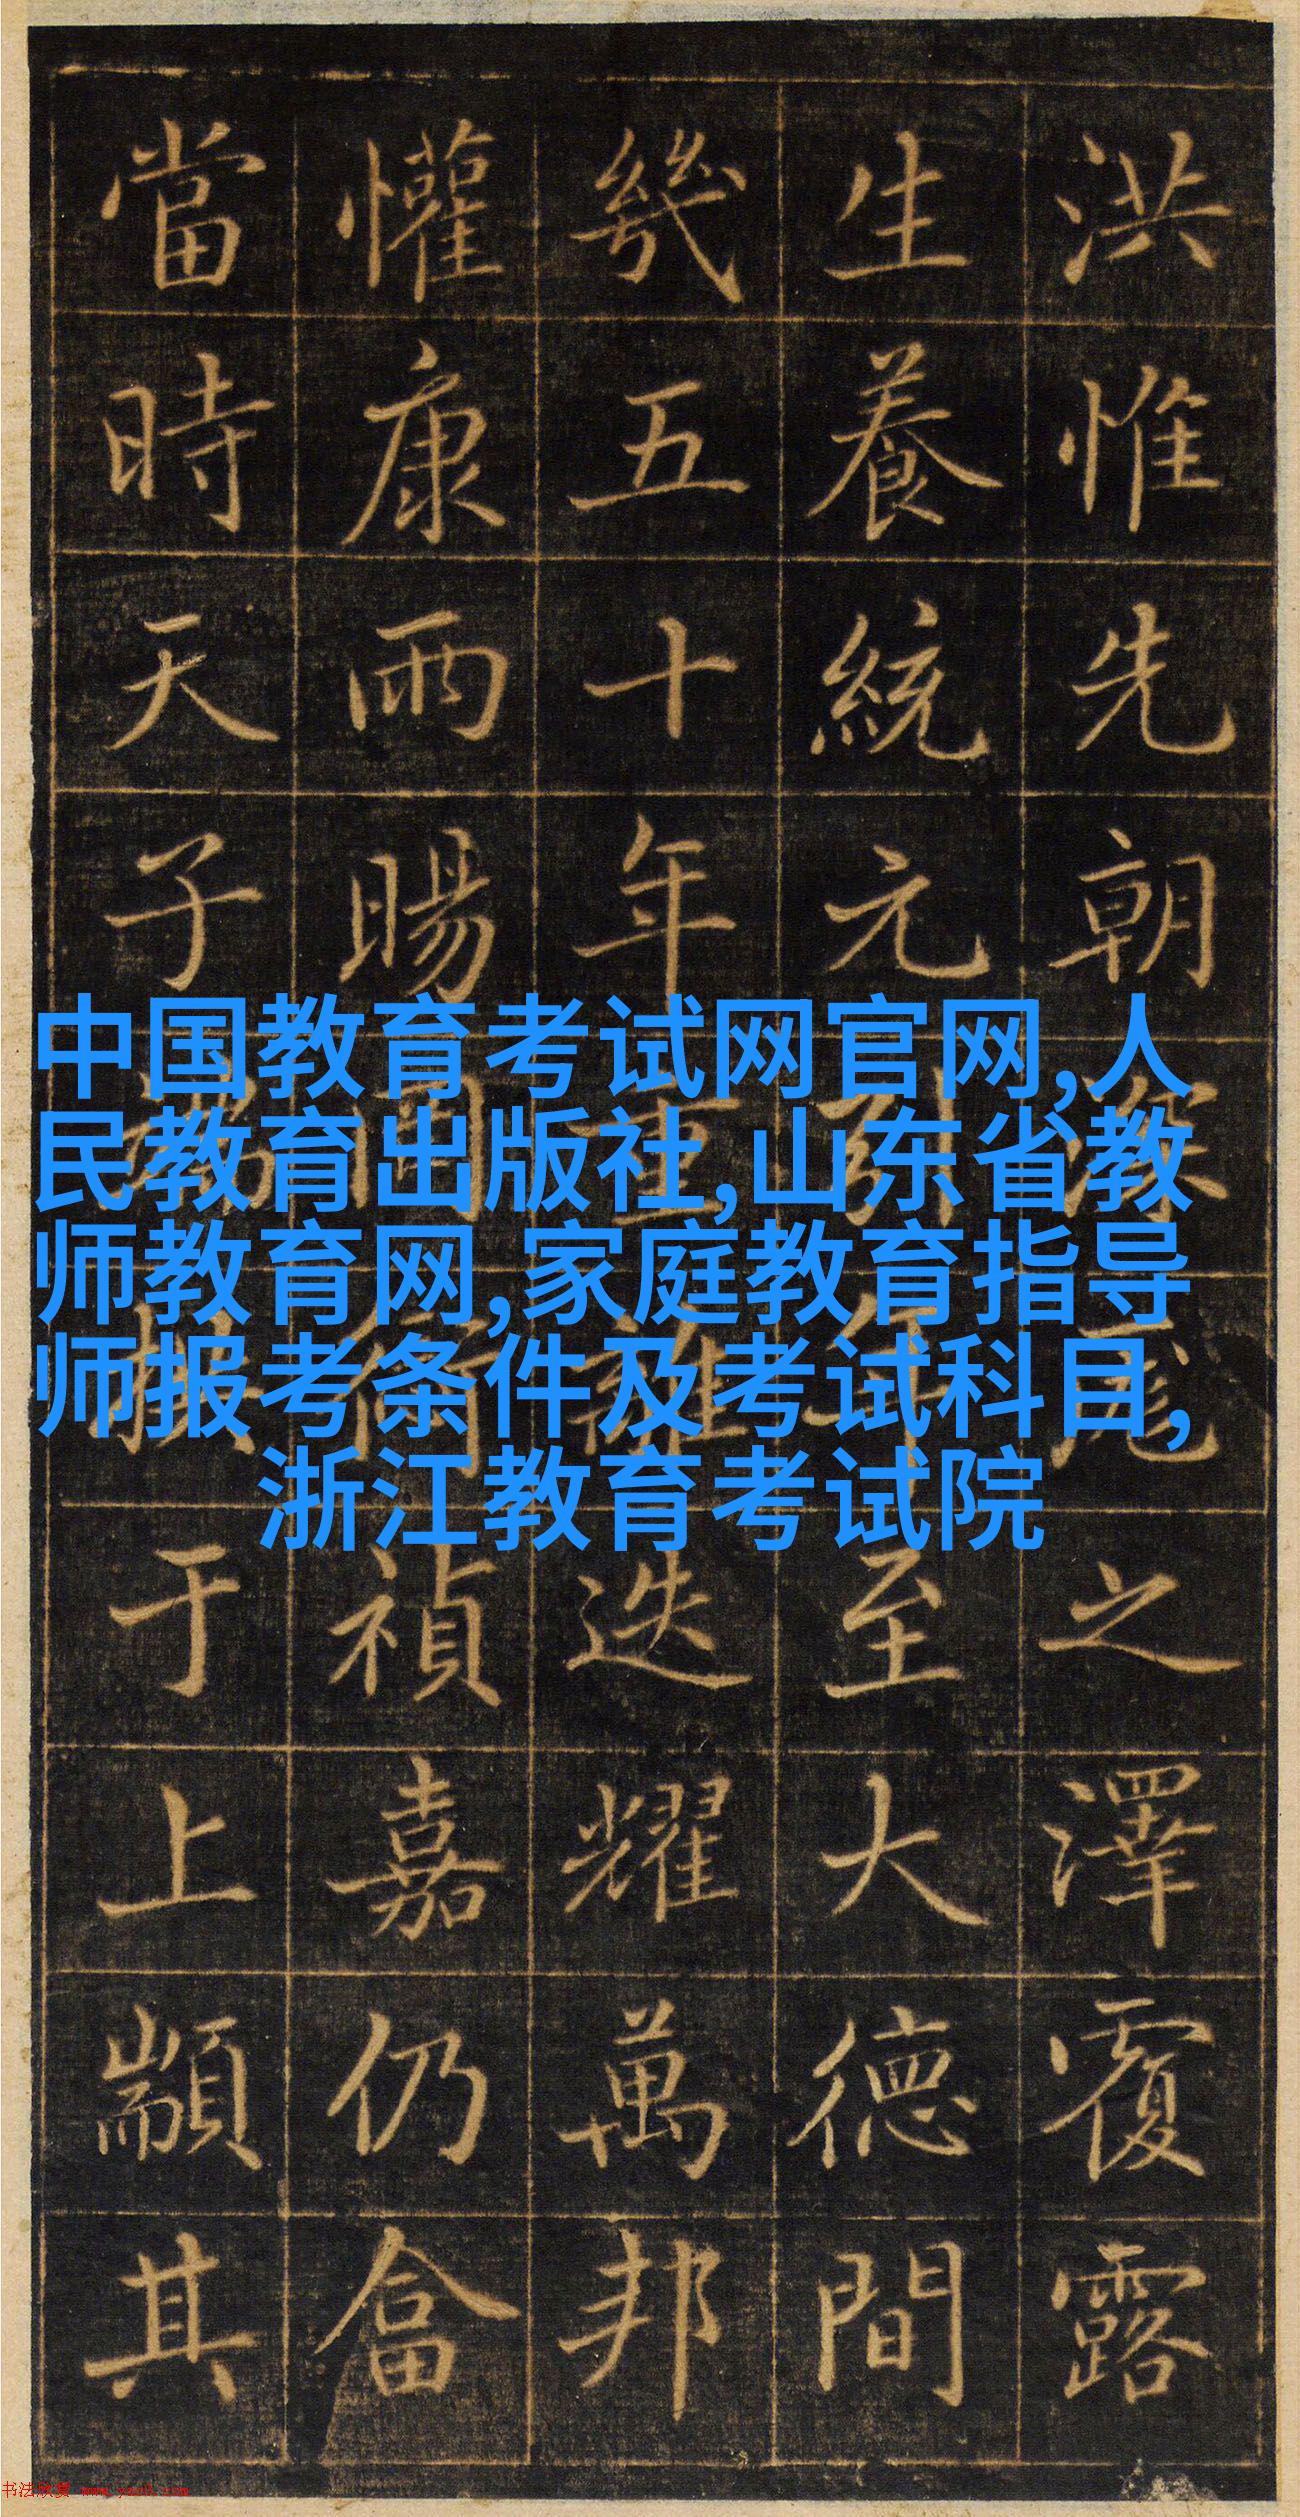 洪惟先朝深之澤覆露
生養統元引年至大德間
幾五十年重離迭耀萬邦
懽康雨暘禎嘉仍畣
當時天子端拱于上顒其
中国教育考试网官网,人
民教育出版社,山东省教
师教育网,家庭教育指导
师报考条件及考试科目,
浙江教育考试院
书法欣赏 www.yac8.com